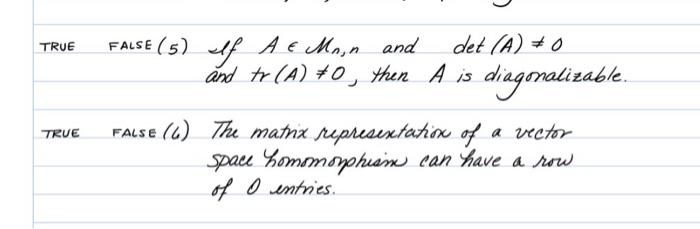 TRUE FALSE (5) If A ∈ Mn,n and det (A) ≠ 0
and tr (A) ≠ 0, then A is diagonalizable.
TRUE FALSE (6) The matrix representation of a vector
space homomorphism can have a row
of 0 entries.